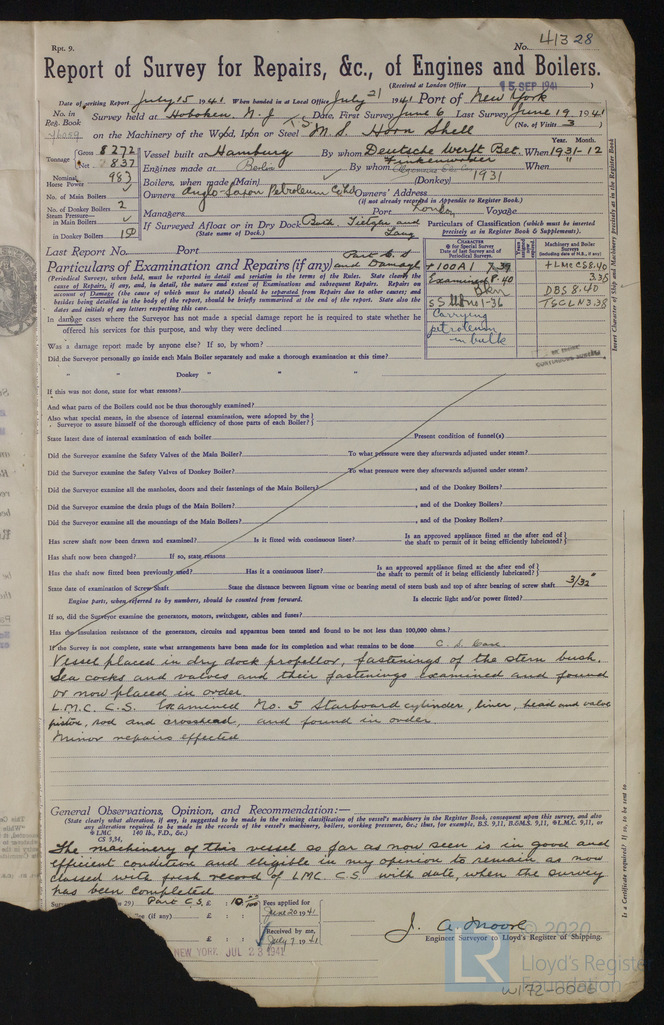 Rpt. 9.
No. 41328
Report of Survey for Repairs, &c., of Engines and Boilers.
(Received at London Office 15 SEP 1941
Date of writing Report July 15 1941 When handed in at Local Office July 21 1941 Port of New York
No. in Reg. Book Survey held at Hoboken, N.J Date, First Survey June 6 Last Survey June 19 1941
(No. of Visits 3)
on the Machinery of the Wood, Iron or Steel M.S. Horn Shell
Tonnage Gross 8272 Net 2837
Vessel built at Hamburg By whom Deutsche Werft Bet. Finkenwarder When 1931-12
Engines made at Berlin By whom When "
Nominal Horse Power 983
Boilers, when made (Main) (Donkey) 1931
No. of Main Boilers
Owners Anglo-Saxon Petroleum Co Ld Owners' Address
(if not already recorded in Appendix to Register Book.)
No. of Donkey Boilers 2
Managers Port London Voyage
Steam Pressure— in Main Boilers
in Donkey Boilers
If Surveyed Afloat or in Dry Dock Both, Tietjen and Lang
(State name of Dock.)
Particulars of Classification (which must be inserted precisely as in Register Book & Supplements).
Last Report No. Port
Particulars of Examination and Repairs (if any) Part C.S and Damage
(Periodical Surveys, when held, must be reported in detail and seriatim in terms of the Rules. State clearly the cause of Repairs, if any, and, in detail, the nature and extent of Examinations and subsequent Repairs. Repairs on account of Damage (the cause of which must be stated) should be separated from Repairs due to other causes; and besides being detailed in the body of the report, should be briefly summarised at the end of the report. State also the dates and initials of any letters respecting this case.
CHARACTER
for Special Survey
Date of last Survey and of Periodical Surveys.
Machinery and Boiler Surveys
(including date of N.B., if any)
+100A1
Examined 8.40
SS No 1-36
Carrying
petroleum
in bulk
+LMC CS 8.40
3.36
DBS 8.40
TSCLN 3.35
Insert Character of Ship and Machinery precisely as in the Register Book
In damage cases where the Surveyor has not made a special damage report he is required to state whether he
offered his services for this purpose, and why they were declined
Was a damage report made by anyone else? If so, by whom?
Did the Surveyor personally go inside each Main Boiler separately and make a thorough examination at this time?
" " Donkey " " "
If this was not done, state for what reasons?
And what parts of the Boilers could not be thus thoroughly examined?
Also what special means, in the absence of internal examination, were adopted by the Surveyor to assure himself of the thorough efficiency of those parts of each Boiler?
State latest date of internal examination of each boiler Present condition of funnel(s)
Did the Surveyor examine the Safety Valves of the Main Boiler? To what pressure were they afterwards adjusted under steam?
Did the Surveyor examine the Safety Valves of Donkey Boiler? To what pressure were they afterwards adjusted under steam?
Did the Surveyor examine all the manholes, doors and their fastenings of the Main Boilers? , and of the Donkey Boilers?
Did the Surveyor examine the drain plugs of the Main Boilers? , and of the Donkey Boilers?
Did the Surveyor examine all the mountings of the Main Boilers? , and of the Donkey Boilers?
Has screw shaft now been drawn and examined? Is it fitted with continuous liner? Is an approved appliance fitted at the after end of the shaft to permit of it being efficiently lubricated?
Has shaft now been changed? If so, state reasons
Has the shaft now fitted been previously used? Has it a continuous liner? Is an approved appliance fitted at the after end of the shaft to permit of it being efficiently lubricated?
State date of examination of Screw Shaft State the distance between lignum vitae or bearing metal of stern bush and top of after bearing of screw shaft 3/32"
Engine parts, when referred to by numbers, should be counted from forward. Is electric light and/or power fitted?
If so, did the Surveyor examine the generators, motors, switchgear, cables and fuses?
Has the insulation resistance of the generators, circuits and apparatus been tested and found to be not less than 100,000 ohms?
If the Survey is not complete, state what arrangements have been made for its completion and what remains to be done C.S. Cont.
Vessel placed in dry dock propellor, fastenings of the stern bush,
Sea cocks and valves and their fastenings Examined and found
or now placed in order.
L.M.C. C.S. Examined No. 5 Starboard cylinder, liner, head and valve
piston, rod and crosshead, and found in order.
Minor repairs effected
General Observations, Opinion, and Recommendation:—
(State clearly what alteration, if any, is suggested to be made in the existing classification of the vessel's machinery in the Register Book, consequent upon this survey, and also any alteration required to be made in the records of the vessel's machinery, boilers, working pressures, &c.; thus, for example, B.S. 9,11, B.&M.S. 9,11, LMC 9,11, or LMC 140 lb., F.D., &c.)
CS 3,34,
The machinery of this vessel so far as now seen is in good and
efficient condition and eligible in my openion to remain as now
classed with fresh record of LMC. CS with date, when the survey
has been completed
Part C.S. £ : 10 00/100 Fees applied for
June 20 1941
(if any) £ : :
Received by me,
July 7 1941
£ : :
J. A. Moore
Engineer Surveyor to Lloyd's Register of Shipping.
NEW YORK JUL 23 1941
Is a Certificate required? If so, to be sent to
© 2020
Lloyd's Register
Foundation
W172-0006